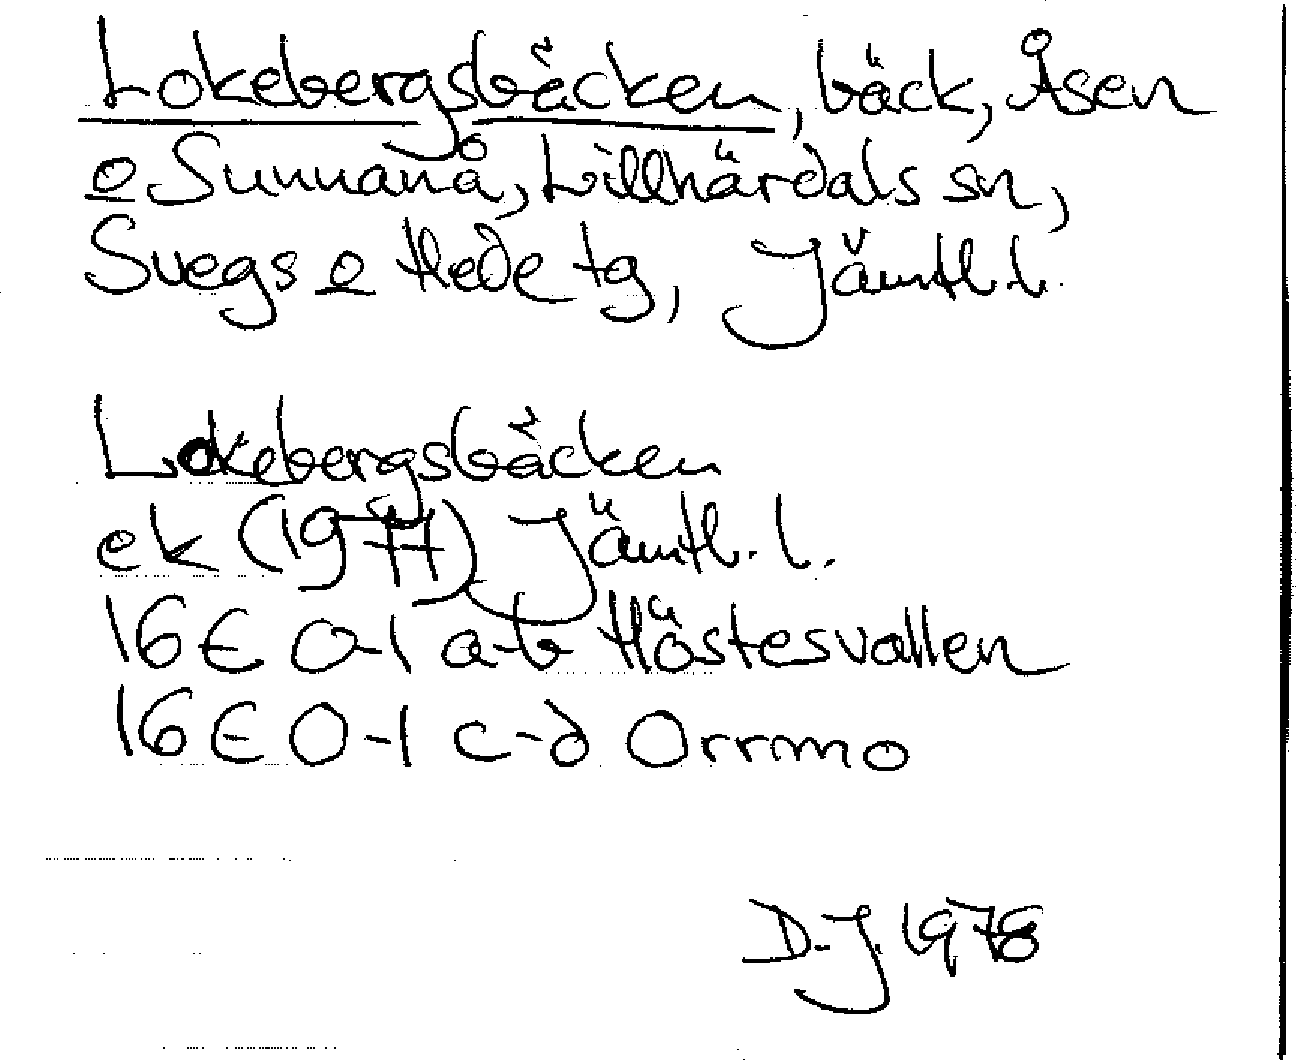 Lokebergsbäcken, bäck, Åsen
o Sunnanå, Lillhärdals sn,
Svegs o Hede tg, Jämtl. l.
Lokebergsbäcken
ek (1977) Jämtl. l.
16E 0-1 a-b Höstesvallen
16E 0-1 c-d Orrmo
D.J. 1978